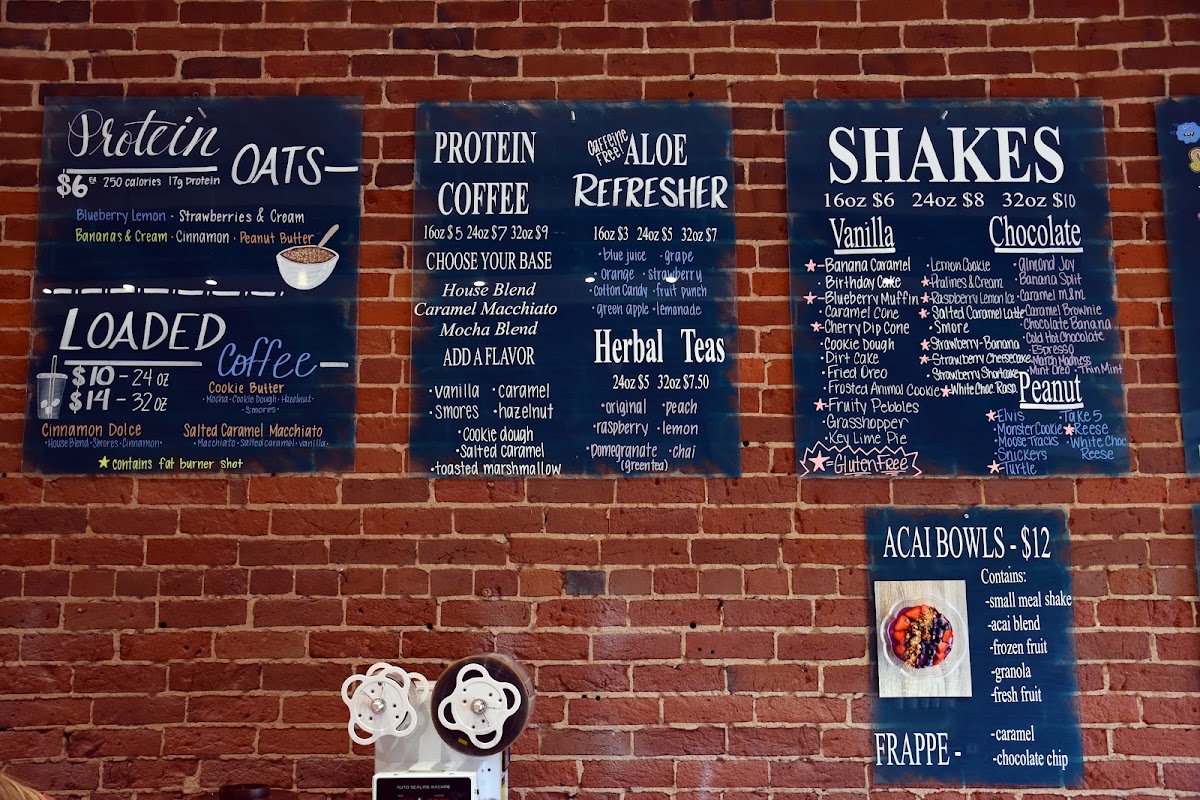 Protein
OATS
$6 EA 250 calories 17g Protein
Blueberry Lemon · Strawberries & Cream
Bananas & Cream · Cinnamon · Peanut Butter
LOADED
Coffee
$10 - 24 oz
$14 - 32 oz
Cookie Butter
· Mocha · Cookie Dough · Hazelnut ·
· Smores ·
Cinnamon Dolce
· House Blend · Smores · Cinnamon ·
Salted Caramel Macchiato
· Macchiato · salted caramel · vanilla ·
★contains fat burner shot
PROTEIN
COFFEE
16oz $5 24oz $7 32oz $9
CHOOSE YOUR BASE
House Blend
Caramel Macchiato
Mocha Blend
ADD A FLAVOR
·vanilla ·caramel
·smores ·hazelnut
·Cookie dough
·Salted caramel
·toasted marshmallow
Caffeine Free!
ALOE
REFRESHER
16oz $3 24oz $5 32oz $7
·blue juice ·grape
·Orange ·strawberry
·cotton candy ·fruit punch
·green apple ·lemonade
Herbal Teas
24oz $5 32oz $7.50
·original ·peach
·raspberry ·lemon
·pomegranate ·chai
(green tea)
SHAKES
16oz $6 24oz $8 32oz $10
Vanilla
★-Banana Caramel
· Birthday Cake
★-Blueberry Muffin
· Caramel Cone
★-Cherry Dip Cone
· Cookie Dough
· Dirt Cake
· Fried Oreo
· Frosted Animal Cookie
★-Fruity Pebbles
· Grasshopper
· Key Lime Pie
★=Gluten Free
· Lemon Cookie
★-Pralines & Cream
★-Raspberry Lemon Ice
★-Salted Caramel Latte
· Smore
★-Strawberry-Banana
★-Strawberry Cheesecake
· Strawberry Shortcake
★-White Choc. Rasp.
Chocolate
·Almond Joy
·Banana Split
·Caramel m&m
·Caramel Brownie
·Chocolate Banana
·Cold Hot Chocolate
·Espresso
·March Madness
·Mint Oreo ·Thin Mint
Peanut
★·Elvis
·Monster Cookie
·Moose Tracks
·Snickers
★-Turtle
·Take 5
★Reese
·White Choc
Reese
ACAI BOWLS - $12
Contains:
-small meal shake
-acai blend
-frozen fruit
-granola
-fresh fruit
FRAPPE -
-caramel
-chocolate chip
AUTO SEALING MACHINE